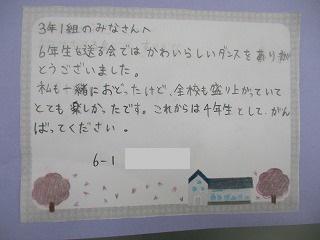 3年1組のみなさんへ
6年生を送る会ではかわいらしいダンスをありが
とうございました。
私も一緒におどったけど、全校も盛り上がっていて
とても楽しかったです。これからは4年生として、がん
ばってください。
6-1